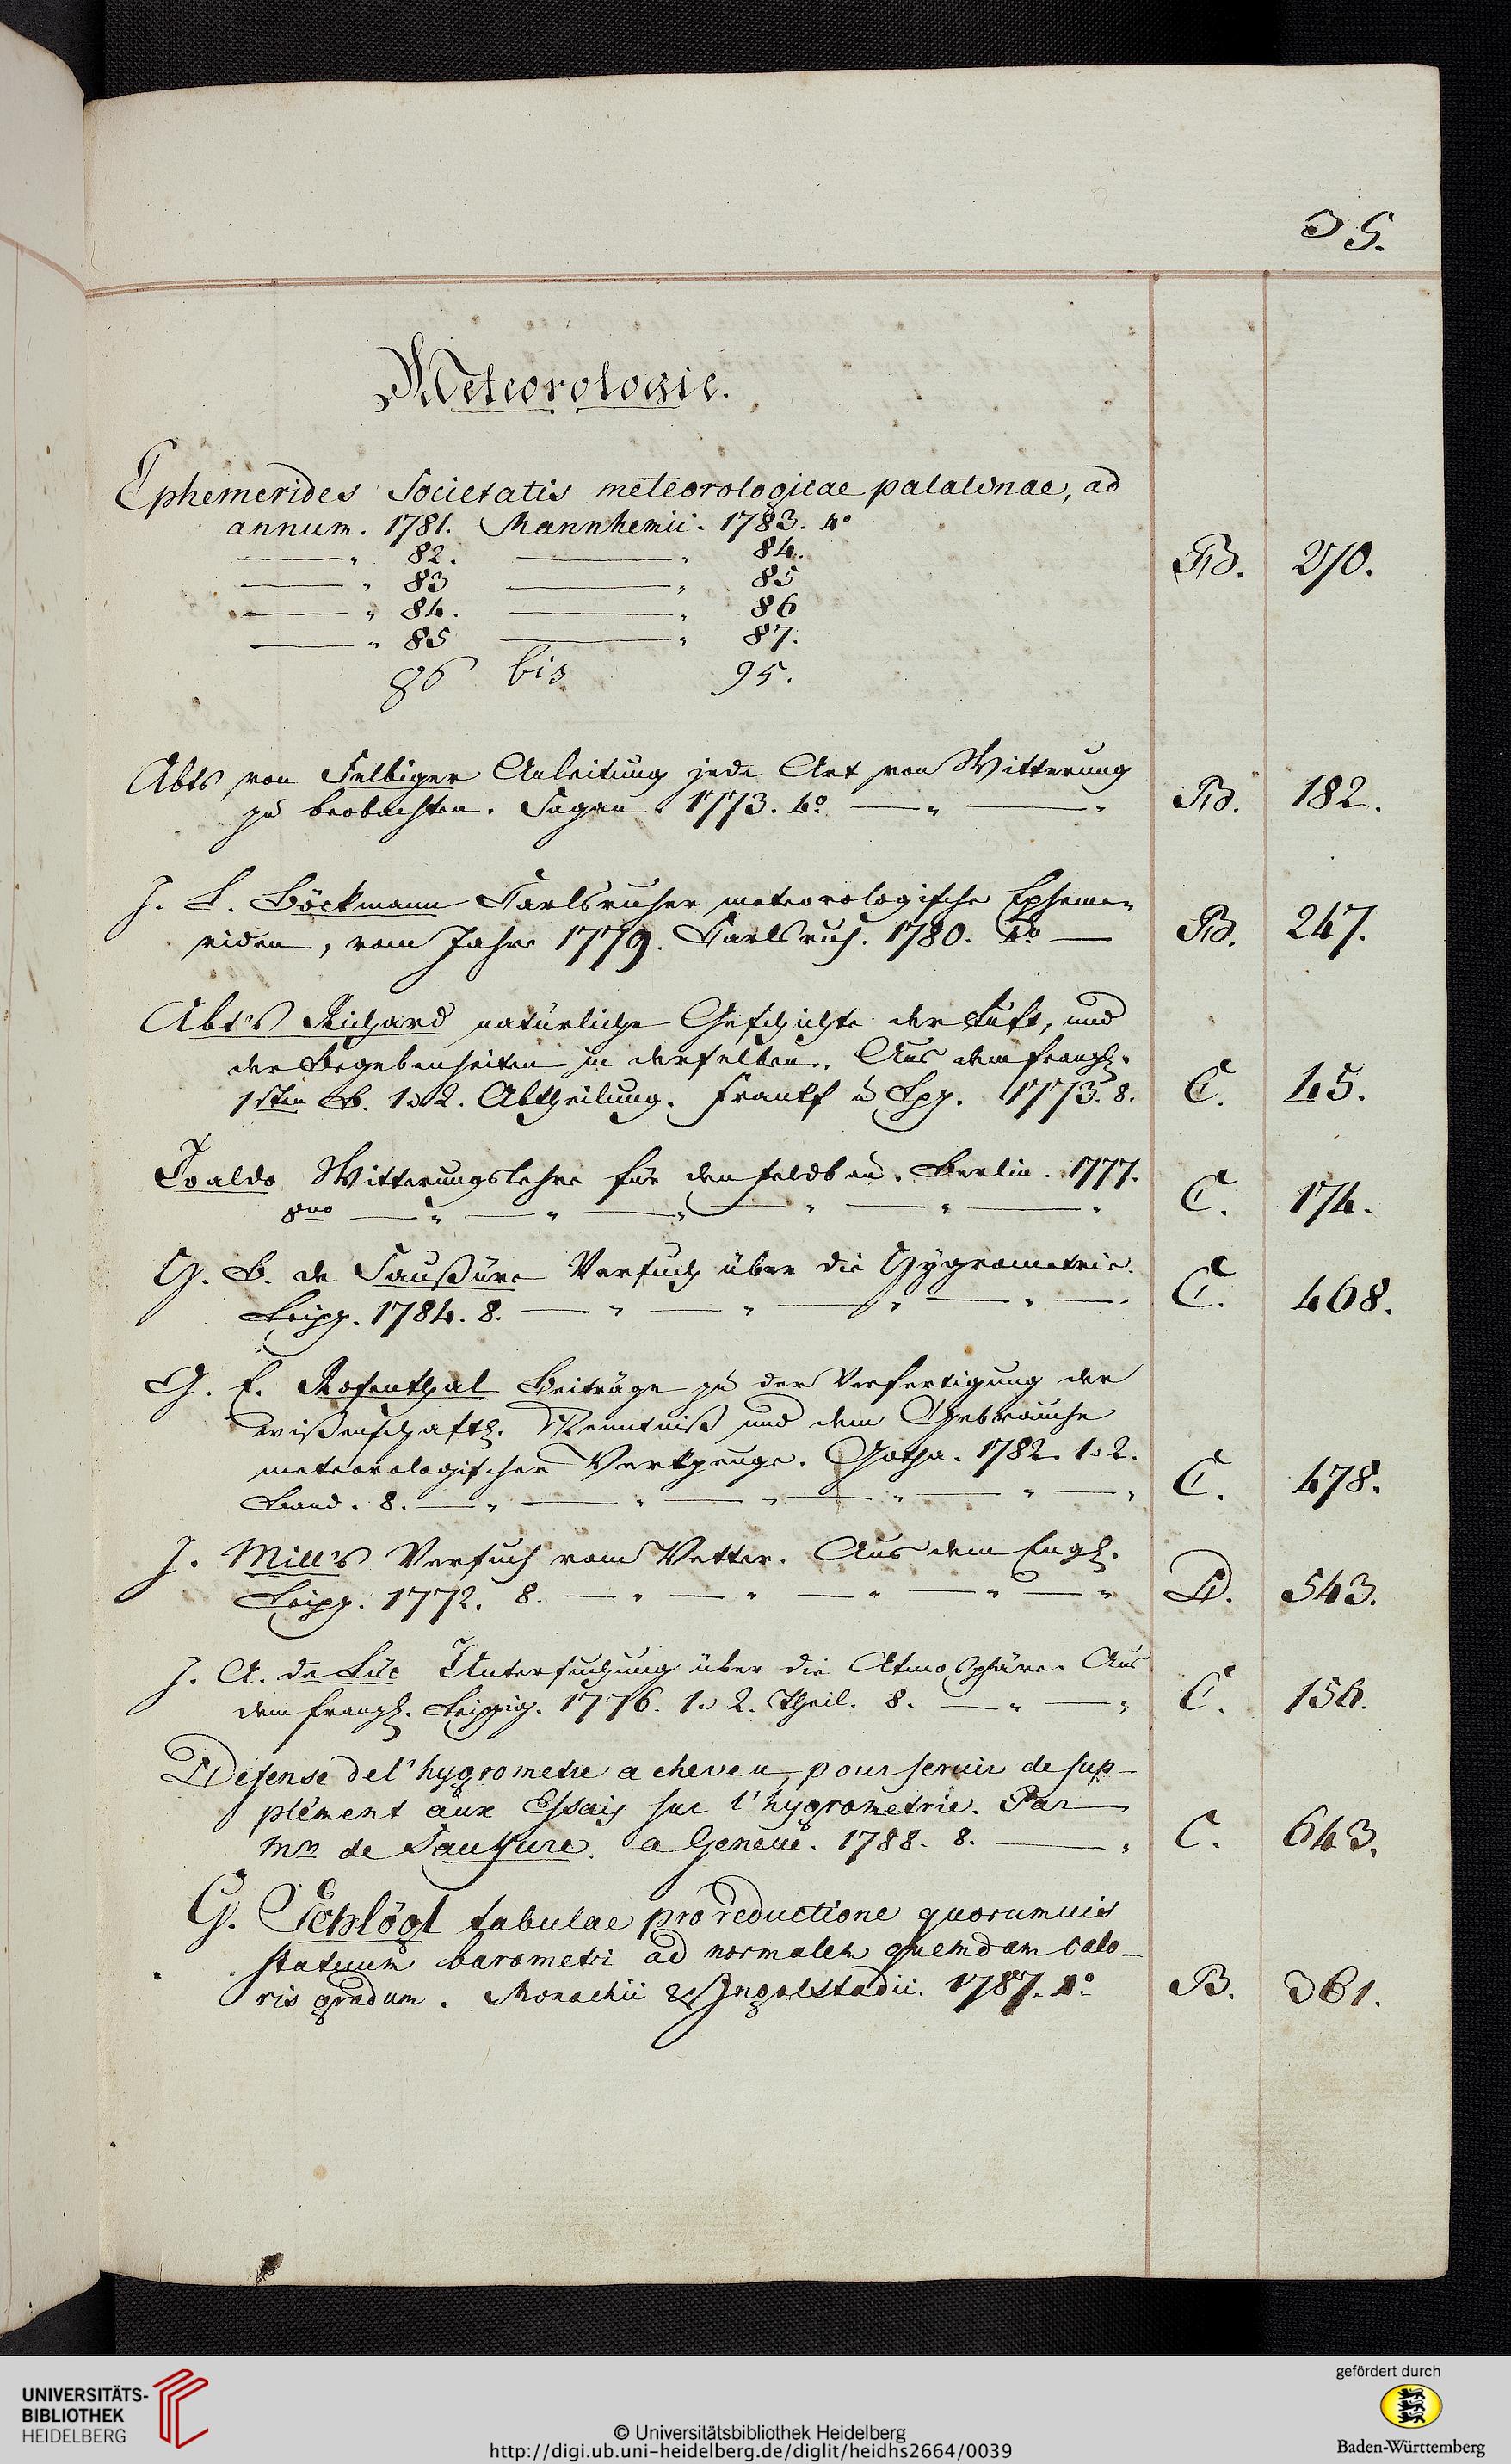 35.
Meteorologie.
Ephemerides Societatis meteorologicae palatinae, ad
annum. 1781. Mannhemii. 1783. 4º
— " 82. — " 84.
— " 83 — " 85
— " 84. — " 86
— " 85 — " 87.
B. 270.
86 bis 95.
Abts von Felbiger Anleitung jede Art von Witterung
zu beobachten. Sagan. 1773. 4º. — " — "
B. 182.
J. L. Böckmann Carlsruher meteorologische Epheme-
riden, vom Jahre 1779. Carlsruh. 1780. 4º —
B. 247.
Abt's Richard natürliche Geschichte der Luft, und
der Begebenheiten in derselben. Aus dem franz.
1sten B. 1. 2. Abtheilung. Frankf u Lpz. 1773. 8.
C. 45.
Toaldo Witterungslehre für den Feldbau. Berlin. 1777.
8vo — " — " — " — " — " — "
C. 174.
H. B. de Saußüre Versuch über die Hygrometrie.
Leipz. 1784. 8. — " — " — " — " — "
C. 468.
G. E. Rosenthal Beiträge zu der Verfertigung der
wißenschaftl. Kenntniß und dem Gebrauche
meteorologischer Werkzeuge. Gotha. 1782. 1. 2.
Band. 8. — " — " — " — " — " — "
C. 478.
J. Mill's Versuch vom Wetter. Aus dem Engl.
Leipz. 1772. 8. — " — " — " — " — "
D. 543.
J. A. de Lüc Untersuchung über die Atmosphäre. Aus
dem franz. Leipzig. 1776. 1. 2. Theil. 8. — " — "
C. 156.
Defense de l'hygrometre a cheveu, pour servir de sup-
plément aux Essais sur l'hygrometrie. Par
Mr. de Saußure. a Geneve. 1788. 8. — "
C. 643.
G. Schlögl tabulae pro reductione quorumuis
statuum barometri ad normalem quemdam calo-
ris gradum. Monachii & Ingolstadii. 1787. 4º.
B. 361.
UNIVERSITÄTS-
BIBLIOTHEK
HEIDELBERG
© Universitätsbibliothek Heidelberg
http://digi.ub.uni-heidelberg.de/diglit/heidhs2664/0039
gefördert durch
Baden-Württemberg